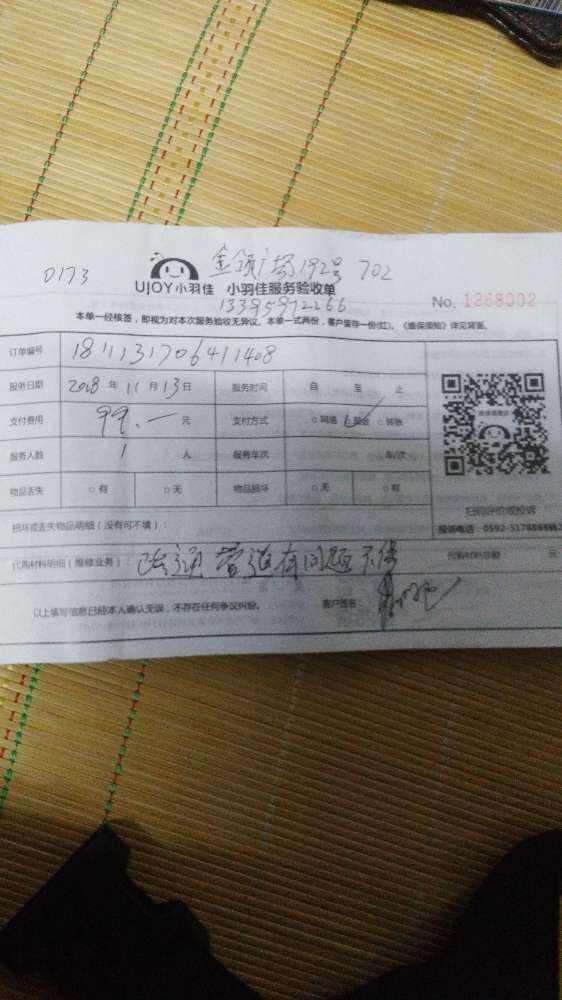 0173
金领广场192号 702
UJOY小羽佳 小羽佳服务验收单
13395912266
No. 1268002
本单一经核签，即视为对本次服务验收无异议。本单一式两份，客户留存一份(红)。《维保须知》详见背面。
订单编号 1811131706411408
服务日期 2018 年 11 月 13 日 服务时间 自 至 止
支付费用 99.— 元 支付方式 ○网络 ○现金 ○转账
服务人数 1 人 服务车次 车/次
物品丢失 ○有 ○无 物品损坏 ○无 ○有
扫码评价或投诉
损坏或丢失物品明细（没有可不填）：
投诉电话：0592-5178888
代购材料明细（维修业务）： 疏通 管道有问题不保 代购材料总额 元
以上填写信息已经本人确认无误，不存在任何争议纠纷。 客户签名：